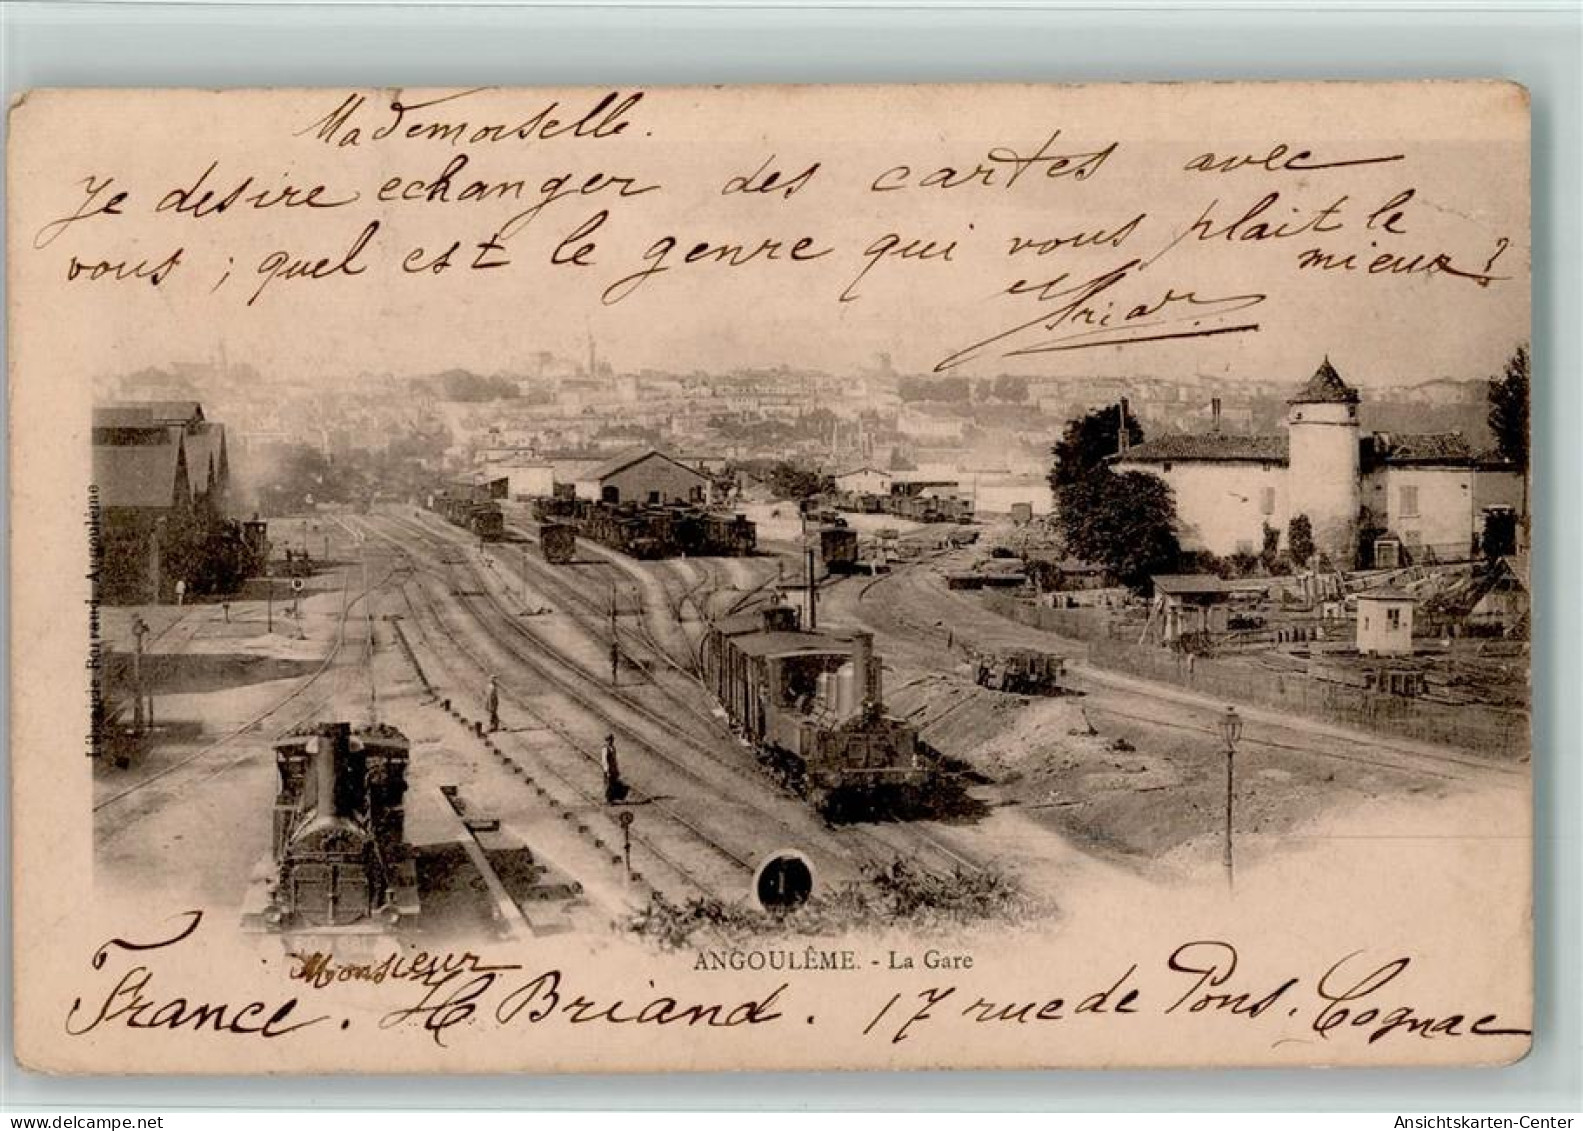 Mademoiselle.
Je desire echanger des cartes avec
vous ; quel est le genre qui vous plait le
mieux ?
Librairie Barraud, Angoulême
ANGOULÊME. - La Gare
Monsieur
France. H Briand. 17 rue de Pons. Cognac
www.delcampe.net
Ansichtskarten-Center